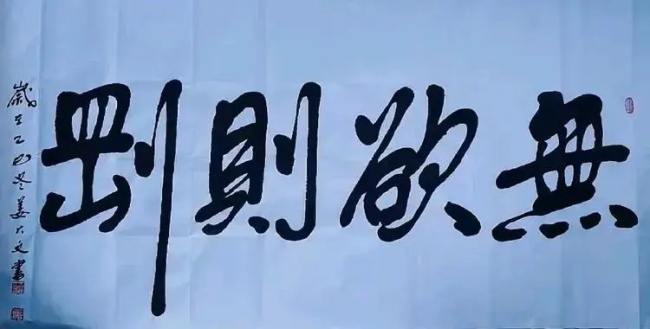 無欲則剛
歲在乙巳冬姜大文書